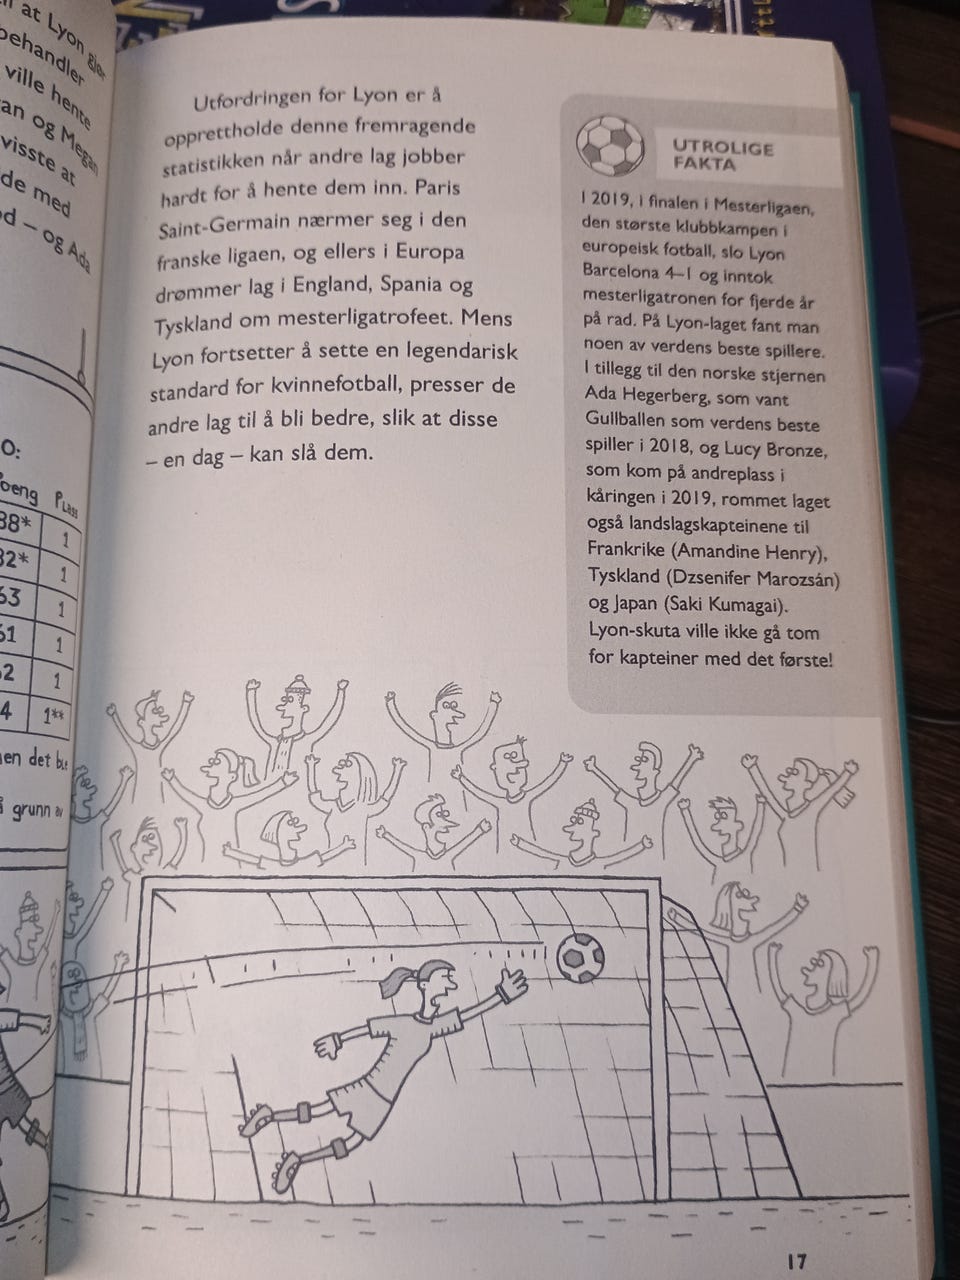 at Lyon gjør
behandler
ville hente
an og Megan
visste at
de med
d – og Ada
O:
oeng Plass
38* 1
32* 1
63 1
61 1
62 1
4 1**
men det ble
å grunn av
Utfordringen for Lyon er å
opprettholde denne fremragende
statistikken når andre lag jobber
hardt for å hente dem inn. Paris
Saint-Germain nærmer seg i den
franske ligaen, og ellers i Europa
drømmer lag i England, Spania og
Tyskland om mesterligatrofeet. Mens
Lyon fortsetter å sette en legendarisk
standard for kvinnefotball, presser de
andre lag til å bli bedre, slik at disse
– en dag – kan slå dem.
UTROLIGE
FAKTA
I 2019, i finalen i Mesterligaen,
den største klubbkampen i
europeisk fotball, slo Lyon
Barcelona 4–1 og inntok
mesterligatronen for fjerde år
på rad. På Lyon-laget fant man
noen av verdens beste spillere.
I tillegg til den norske stjernen
Ada Hegerberg, som vant
Gullballen som verdens beste
spiller i 2018, og Lucy Bronze,
som kom på andreplass i
kåringen i 2019, rommet laget
også landslagskapteinene til
Frankrike (Amandine Henry),
Tyskland (Dzsenifer Marozsán)
og Japan (Saki Kumagai).
Lyon-skuta ville ikke gå tom
for kapteiner med det første!
17